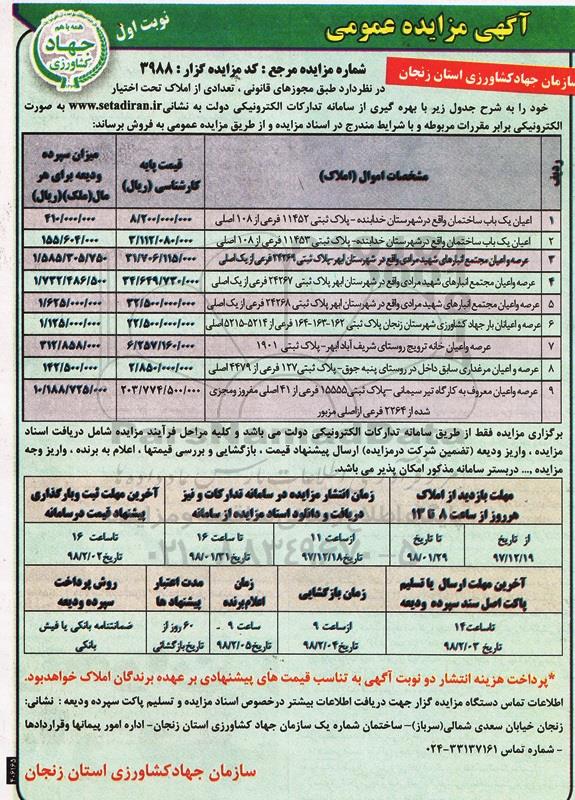 آگهی مزایده عمومی
نوبت اول
همه با هم
جهاد
کشاورزی
سازمان جهاد کشاورزی استان زنجان
شماره مزایده مرجع : کد مزایده گزار : ۳۹۸۸
در نظر دارد طبق مجوزهای قانونی ، تعدادی از املاک تحت اختیار
خود را به شرح جدول زیر با بهره گیری از سامانه تدارکات الکترونیکی دولت به نشانی www.setadiran.ir به صورت
الکترونیکی برابر مقررات مربوطه و با شرایط مندرج در اسناد مزایده و از طریق مزایده عمومی به فروش برساند:
ردیف مشخصات اموال (املاک) قیمت پایه کارشناسی (ریال) میزان سپرده ودیعه برای هر مال(ملک)(ریال)
۱ اعیان یک باب ساختمان واقع در شهرستان خدابنده - پلاک ثبتی ۱۱۴۵۲ فرعی از ۱۰۸ اصلی ۸/۲۰۰/۰۰۰/۰۰۰ ۴۱۰/۰۰۰/۰۰۰
۲ اعیان یک باب ساختمان واقع در شهرستان خدابنده- پلاک ثبتی ۱۱۴۵۳ فرعی از ۱۰۸ اصلی ۳/۱۱۲/۰۸۰/۰۰۰ ۱۵۵/۶۰۴/۰۰۰
۳ عرصه و اعیان مجتمع انبارهای شهید مرادی واقع در شهرستان ابهر-پلاک ثبتی ۲۴۲۶۹ فرعی از یک اصلی ۳۱/۷۰۶/۱۱۵/۰۰۰ ۱/۵۸۵/۳۰۵/۷۵۰
۴ عرصه و اعیان مجتمع انبارهای شهید مرادی واقع در شهرستان ابهر پلاک ثبتی ۲۴۲۶۷ فرعی از یک اصلی ۳۴/۶۴۹/۷۳۰/۰۰۰ ۱/۷۳۲/۴۸۶/۵۰۰
۵ عرصه و اعیان مجتمع انبارهای شهید مرادی واقع در شهرستان ابهر پلاک ثبتی ۲۴۲۶۸ فرعی از یک اصلی ۳۲/۵۰۰/۰۰۰/۰۰۰ ۱/۶۲۵/۰۰۰/۰۰۰
۶ عرصه و اعیانان بار جهاد کشاورزی شهرستان زنجان پلاک ثبتی ۱۶۲-۱۶۳-۱۶۴ فرعی از ۵۲۱۴-۵۲۱۵ اصلی ۲۲/۵۰۰/۰۰۰/۰۰۰ ۱/۱۲۵/۰۰۰/۰۰۰
۷ عرصه و اعیان خانه ترویج روستای شریف آباد ابهر- پلاک ثبتی ۱۹۰۱ ۶/۲۵۷/۱۶۰/۰۰۰ ۳۱۲/۸۵۸/۰۰۰
۸ عرصه و اعیان مرغداری سابق داخل در روستای پنبه جوق- پلاک ثبتی ۱۲۷ فرعی از ۴۴۷۹ اصلی ۲/۸۵۰/۰۰۰/۰۰۰ ۱۴۲/۵۰۰/۰۰۰
۹ عرصه و اعیان معروف به کارگاه تیر سیمانی -پلاک ثبتی ۱۵۵۵۵ فرعی از ۴۱ اصلی مفروز و مجزی ۲۰۳/۷۷۴/۵۰۰/۰۰۰ ۱۰/۱۸۸/۷۲۵/۰۰۰
شده از ۲۲۶۴ فرعی از اصلی مزبور
برگزاری مزایده فقط از طریق سامانه تدارکات الکترونیکی دولت می باشد و کلیه مراحل فرآیند مزایده شامل دریافت اسناد
مزایده ، واریز ودیعه (تضمین شرکت در مزایده) ارسال پیشنهاد قیمت ، بازگشایی و بررسی قیمتها ، اعلام به برنده ، واریز وجه
مزایده ،... در بستر سامانه مذکور امکان پذیر می باشد.
مهلت بازدید از املاک هر روز از ساعت ۸ تا ۱۳ زمان انتشار مزایده در سامانه تدارکات و نیز دریافت و دانلود اسناد مزایده از سامانه آخرین مهلت ثبت و بارگذاری پیشنهاد قیمت در سامانه
از تاریخ تا تاریخ از ساعت ۱۱ تا ساعت ۱۶ تا ساعت ۱۶
۹۷/۱۲/۱۹ ۹۸/۰۱/۲۹ تاریخ ۹۷/۱۲/۱۸ تاریخ ۹۸/۰۱/۳۱ تاریخ ۹۸/۰۲/۰۲
آخرین مهلت ارسال یا تسلیم پاکت اصل سند سپرده ودیعه زمان بازگشایی زمان اعلام برنده مدت اعتبار پیشنهاد ها روش پرداخت سپرده ودیعه
تا ساعت ۱۴ از ساعت ۹ ساعت ۹ - ۶۰ روز از ضمانتنامه بانکی یا فیش
تاریخ ۹۸/۰۲/۰۳ تاریخ ۹۸/۰۲/۰۴ تاریخ ۹۸/۰۲/۰۵ تاریخ بازگشائی بانکی
*پرداخت هزینه انتشار دو نوبت آگهی به تناسب قیمت های پیشنهادی بر عهده برندگان املاک خواهد بود.
اطلاعات تماس دستگاه مزایده گزار جهت دریافت اطلاعات بیشتر درخصوص اسناد مزایده و تسلیم پاکت سپرده ودیعه : نشانی:
زنجان خیابان سعدی شمالی(سرباز)- ساختمان شماره یک سازمان جهاد کشاورزی استان زنجان- اداره امور پیمانها و قراردادها
- شماره تماس ۳۳۱۳۷۱۶۱-۰۲۴
سازمان جهاد کشاورزی استان زنجان